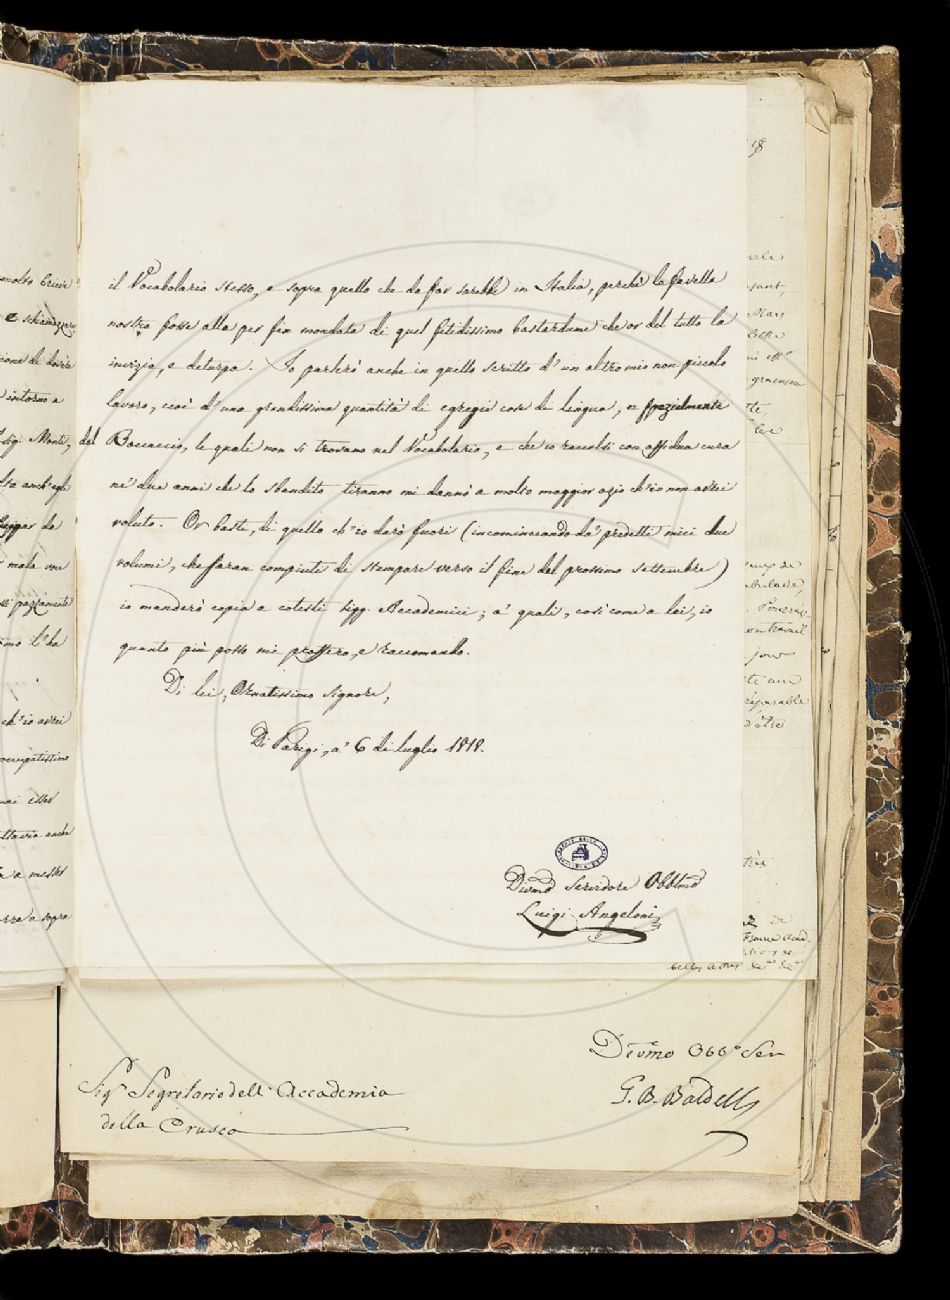 il Vocabolario stesso, e sopra quello che da far sarebbe in Italia, perchè la favella
nostra fosse alla per fin mondata di quel fetidissimo bastardume che or del tutto la
invizia, e deturpa. Io parlerò anche in quello scritto d'un altro mio non piccolo
lavoro, cioè d'una grandissima quantità di egregie cose di lingua, e spezialmente
del Boccaccio, le quali non si trovano nel Vocabolario, e che io raccolsi con assidua cura
ne' due anni che lo sbandito tiranno mi dannò a molto maggior ozio ch'io non avrei
voluto. Or basta, di quello ch'io darò fuori (incominciando da' predetti miei due
volumi, che saran compiuti di stampare verso il fine del prossimo settembre)
io manderò copia a cotesti sigg. Accademici; a' quali, così come a lei, io
quanto più posso mi proffero, e raccomando.
Di lei, Ornatissimo signore,
Di Parigi, a' 6 di luglio 1818.
Divmo Servidore Obblmo
Luigi Angeloni
Sigr Segretario dell'Accademia
della Crusca
Devmo Obbo Ser
G. B. Baldelli
molto
e schiamazzar
intorno a
sigr Monti,
anch'egli
da
pazzamente
l'ha
ch'io avrei
occupatissimo
anche
e sopra
18
jour
travail
d'être